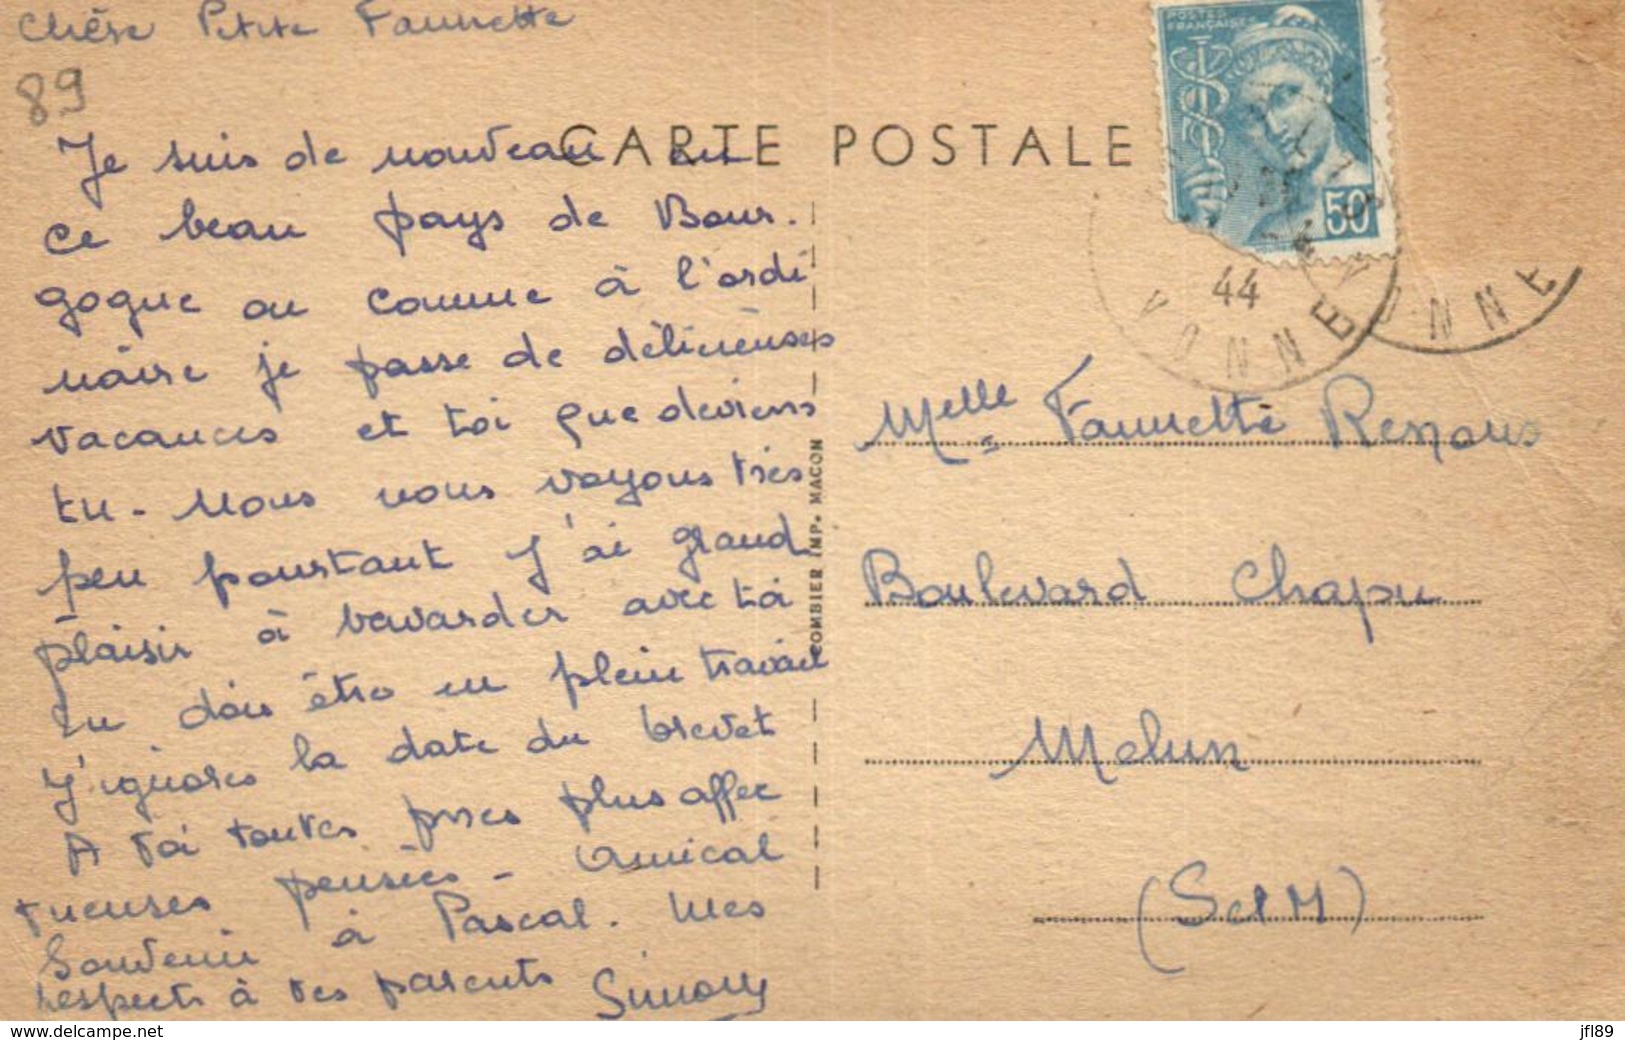 Chère Petite Fannette
89
CARTE POSTALE
Je suis de nouveau en
ce beau pays de Bour-
gogne ou comme à l'ordi
naire je passe de délicieuses
vacances et toi que deviens
tu - Nous nous voyons très
peu pourtant j'ai grand
plaisir à bavarder avec toi
Tu dois être en plein travail
J'ignore la date du brevet
A toi toutes mes plus affec
tueuses pensées - Amical
Souvenir à Pascal. Mes
respects à tes parents Simony
COMBIER IMP. MACON
POSTES
FRANÇAISES
50
44
YONNE
YONNE
Melle Fannette Renous
Boulevard Chapu
Melun
(S et M)
www.delcampe.net
jfl89